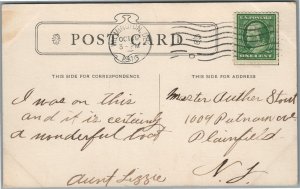 POST CARD
THIS SIDE FOR CORRESPONDENCE.
THIS SIDE FOR THE ADDRESS.
OCT
1913
U.S. POSTAGE
ONE CENT
I was on this
and it is certainly
a wonderful boat
Aunt Lizzie
Master Auther Stout
1009 Putnam ave
Plainfield
N.J.